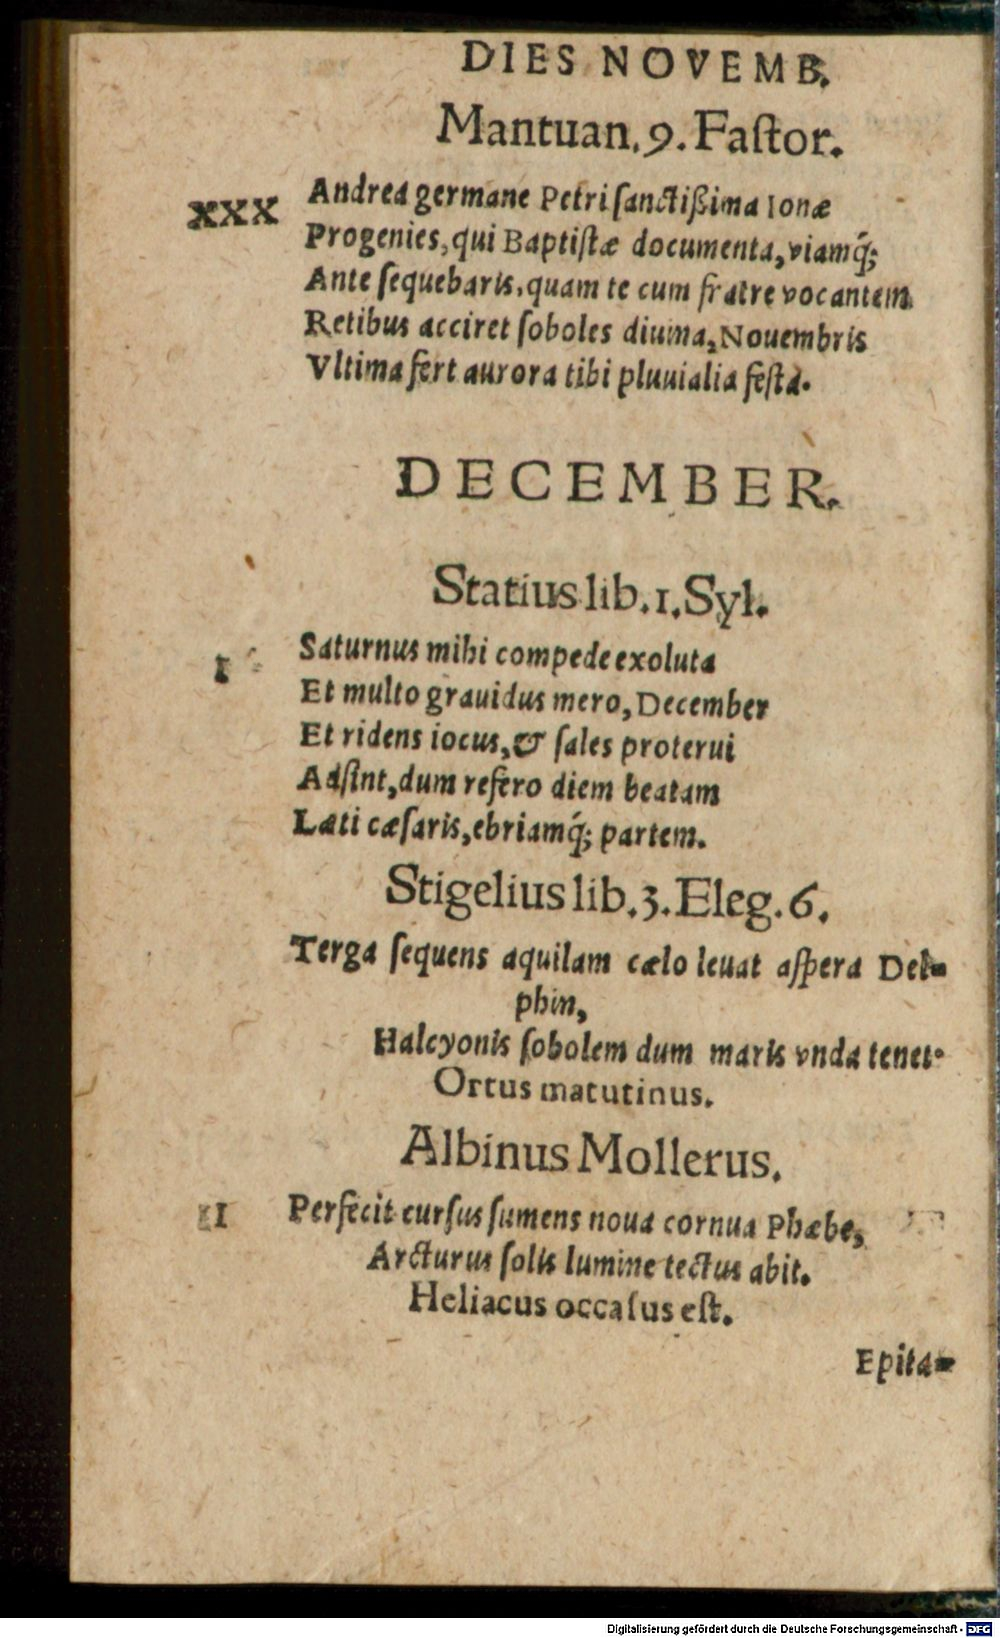 DIES NOVEMB.
Mantuan.9.Faſtor.
XXX Andrea germane Petri ſanctißima Ionæ
Progenies, qui Baptiſtæ documenta, viamq́;
Ante ſequebaris, quam te cum fratre vocantem
Retibus acciret ſoboles diuina, Nouembris
Vltima fert aurora tibi pluuialia feſta.
DECEMBER.
Statius lib.1.Syl.
I Saturnus mihi compede exoluta
Et multo grauidus mero, December
Et ridens iocus, & ſales proterui
Adſint, dum refero diem beatam
Læti cæſaris, ebriamq́; partem.
Stigelius lib.3.Eleg.6.
Terga ſequens aquilam cælo leuat aſpera Del-
phin,
Halcyonis ſobolem dum maris vnda tenet.
Ortus matutinus.
Albinus Mollerus.
II Perfecit curſus ſumens noua cornua Phæbe,
Arcturus ſolis lumine tectus abit.
Heliacus occaſus eſt.
Epita-
Digitalisierung gefördert durch die Deutsche Forschungsgemeinschaft - DFG